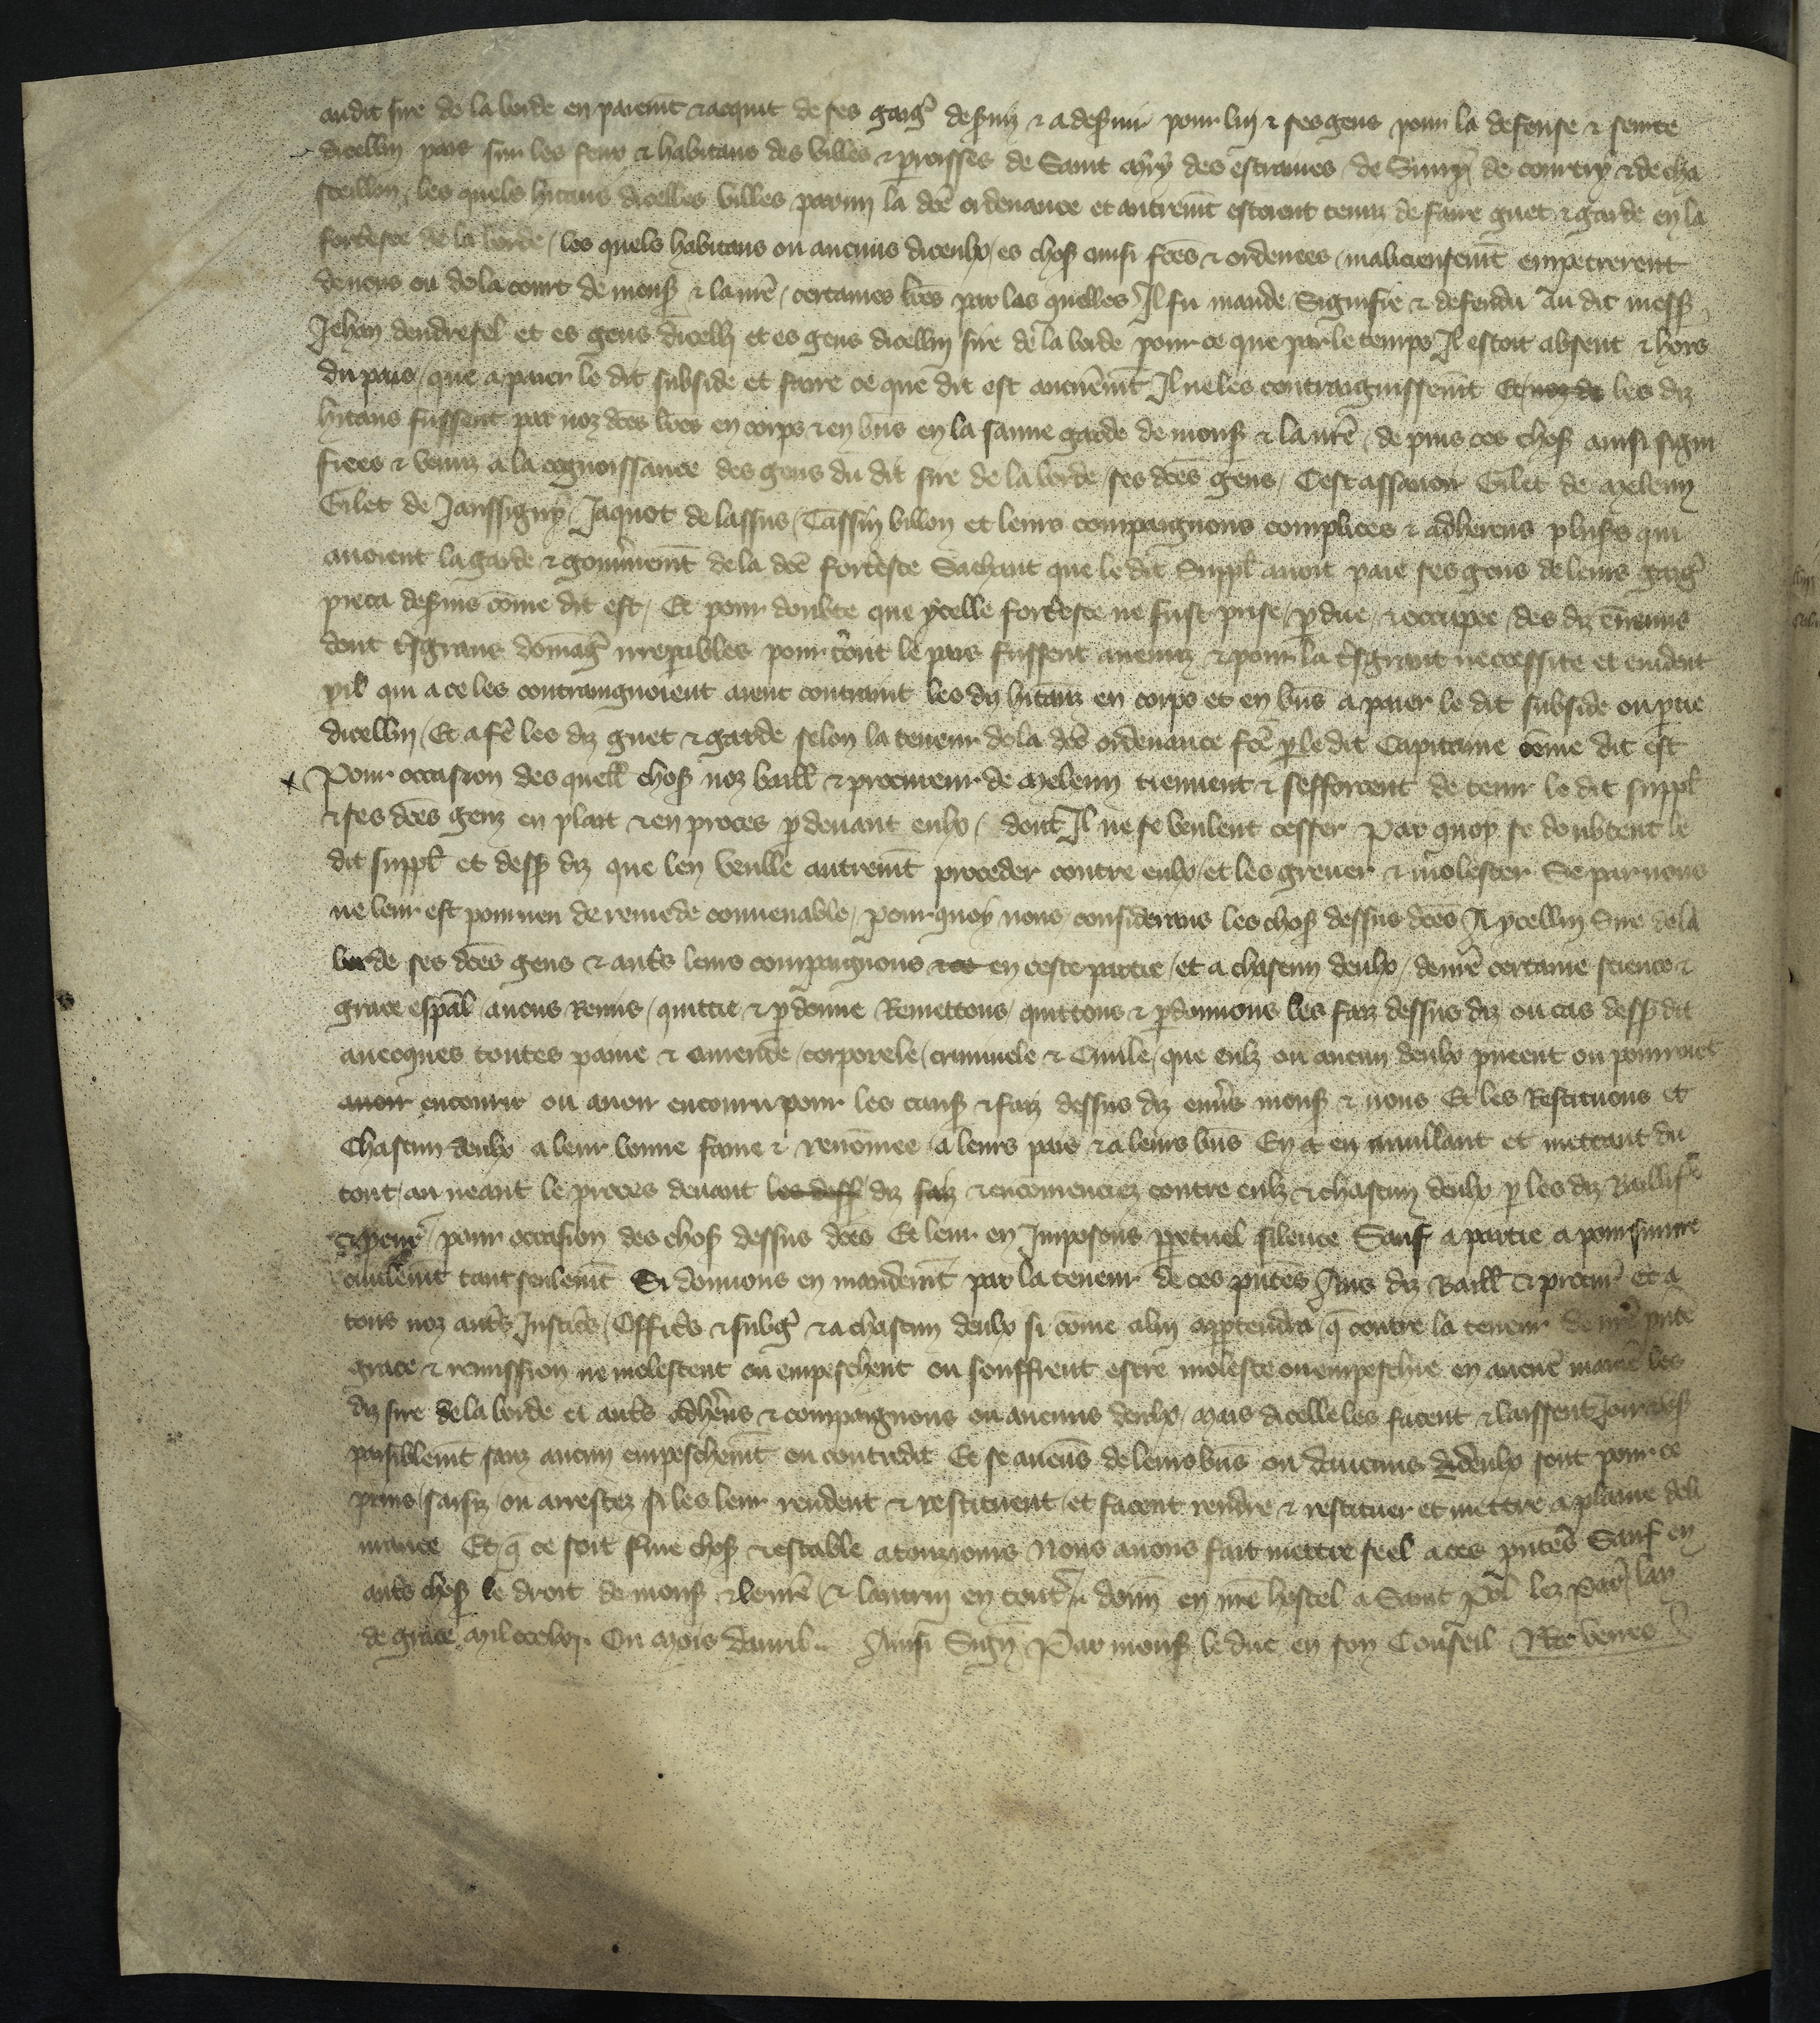 audit sire de la borde en paiemt & acquit de ses gaig deßuiz & a deßuir pour luy & ses gens pour la defense & seurte
dicelluy pais sur les feux & habitans des villes & proisses de Saint Mery des estraines de de courtry & de cha
steillon les quels hitans dicelles villes parmi la dce ordenance et autremt estoient tenuz de faire guet & garde en la
forteresce de la borde / les quels habitans ou aucuns diceulx / es choß ainsi fces & ordenees / malicieusemt empetrerent
de nous ou de la court de monß & la nre / certaines lres par les quelles Il fu mande / Signifie & defendu Au dit messß
Jehan dendresel et es gens dicelli et es gens dicelluy sire de la borde pour ce que par le temps Il estoit absent & hors
du pais / que a paier le dit subside et faire ce que dit est aucunemt Il ne les contraignissent Et les diz
hitans fussent par noz dces lres en corps & en bns en la sauve garde de monß & la nre / de puis ces choß ainsi signi
fiees & venuz a la cognoissance des gens du dit sire de la borde / ses dces gens / Cest assavoir Gilet de Meleun
Gilet de Janssigny / Jaquot de lassus / Cassin billon et leurs compaignons complices & adherens plußs qui
avoient la garde & gouvnemt de la dce forteresce Sachant que le dit Suppl avoit paie ses gens de leurs gaig
pieca deßuis come dit est / Et pour doubte que ycelle forteresce ne fust prise / pdue / & occupee / des diz ennemis
dont tsgrans domag irrepables pour tout le pais fussent avenuz & pour la tsgrant neccessite et evident
pil qui a ce les contraignoient aient contraint les diz hitanz en corps et en bns a paier le dit subside ou ptie
dicelluy / Et a fe les diz guet & garde selon la teneur de la dce ordenance fce p le dit Capitaine come dit est
Pour occasion des quell choß noz baill & procureur de Meleun tiennent & sefforcent de tenir le dit suppl
& ses dces genz en plait & en proces p devant eulx / dont Il ne se veulent cesser Par quoy se doubtent le
dit suppl et dessß diz que len veulle autremt proceder contre eulx / et les grever & molester Se par nous
ne leur est pourveu de remede convenable / Pour quoy nous considerans les choß dessus dces A ycelluy Sire de la
borde ses dces gens & auts leurs compaignons & ce en ceste partie / et a chascun deulx / de nre certaine science &
grace espal avons Remis / quittie & pdonne Remettons / quittons & pdonnons les faiz dessus diz ou cas dessß dit
avecques toutes paine & amende / corporele / criminele & Civile / que eulz ou aucun deulx pueent ou pourroiet
avoir encourir ou avoir encouru pour les cauß & faiz dessus diz envs monß & nous Et les Restituons et
Chascun deulx a leur bonne fame & renomee a leurs pais & a leurs bns En a en anullant et mettant du
tout / au neant le proces devant les dessß diz faiz & encomenciez contre eulz & chascun deulx p les diz Baillif
& pcur / pour occasion des choß dessus dces Et leur en Imposons ppetuel silence Sauf a partie a poursuivre
civilemt tant seulemt Si donnons en mandemt par la teneur de ces pntes Aus diz Baill & procur Et a
tous noz auts Justics / Offics & subg & a chascun deulx si come aluy apptendra q contre la teneur de nre pnte
grace & remission ne molestent ou empeschent ou souffrent estre moleste ou empeschie en aucune maniere les
diz sire de la borde et auts adherens & compaignons ou aucuns deulx / Mais dicelle les facent & laissent Joir & uß
paisiblemt sanz aucun empeschemt ou contredit Et se aucuns de leurs bns ou daucuns deulx sont pour ce
prins / saisiz / ou arrestez si les leur rendent & restituent / et facent rendre & restituer et mettre a plaine deli
vrance Et q ce soit ferme choß & estable a touziours Nous avons fait mettre seel a ces pntes Sauf en
auts choß le droit de monß & le nre / & lautrui en tout donn en nre hostel a Saint Pol lez Par lan
de grace Mil ccclxj Ou Mois davril Ainsi Sign Par monß le duc en son Conseil